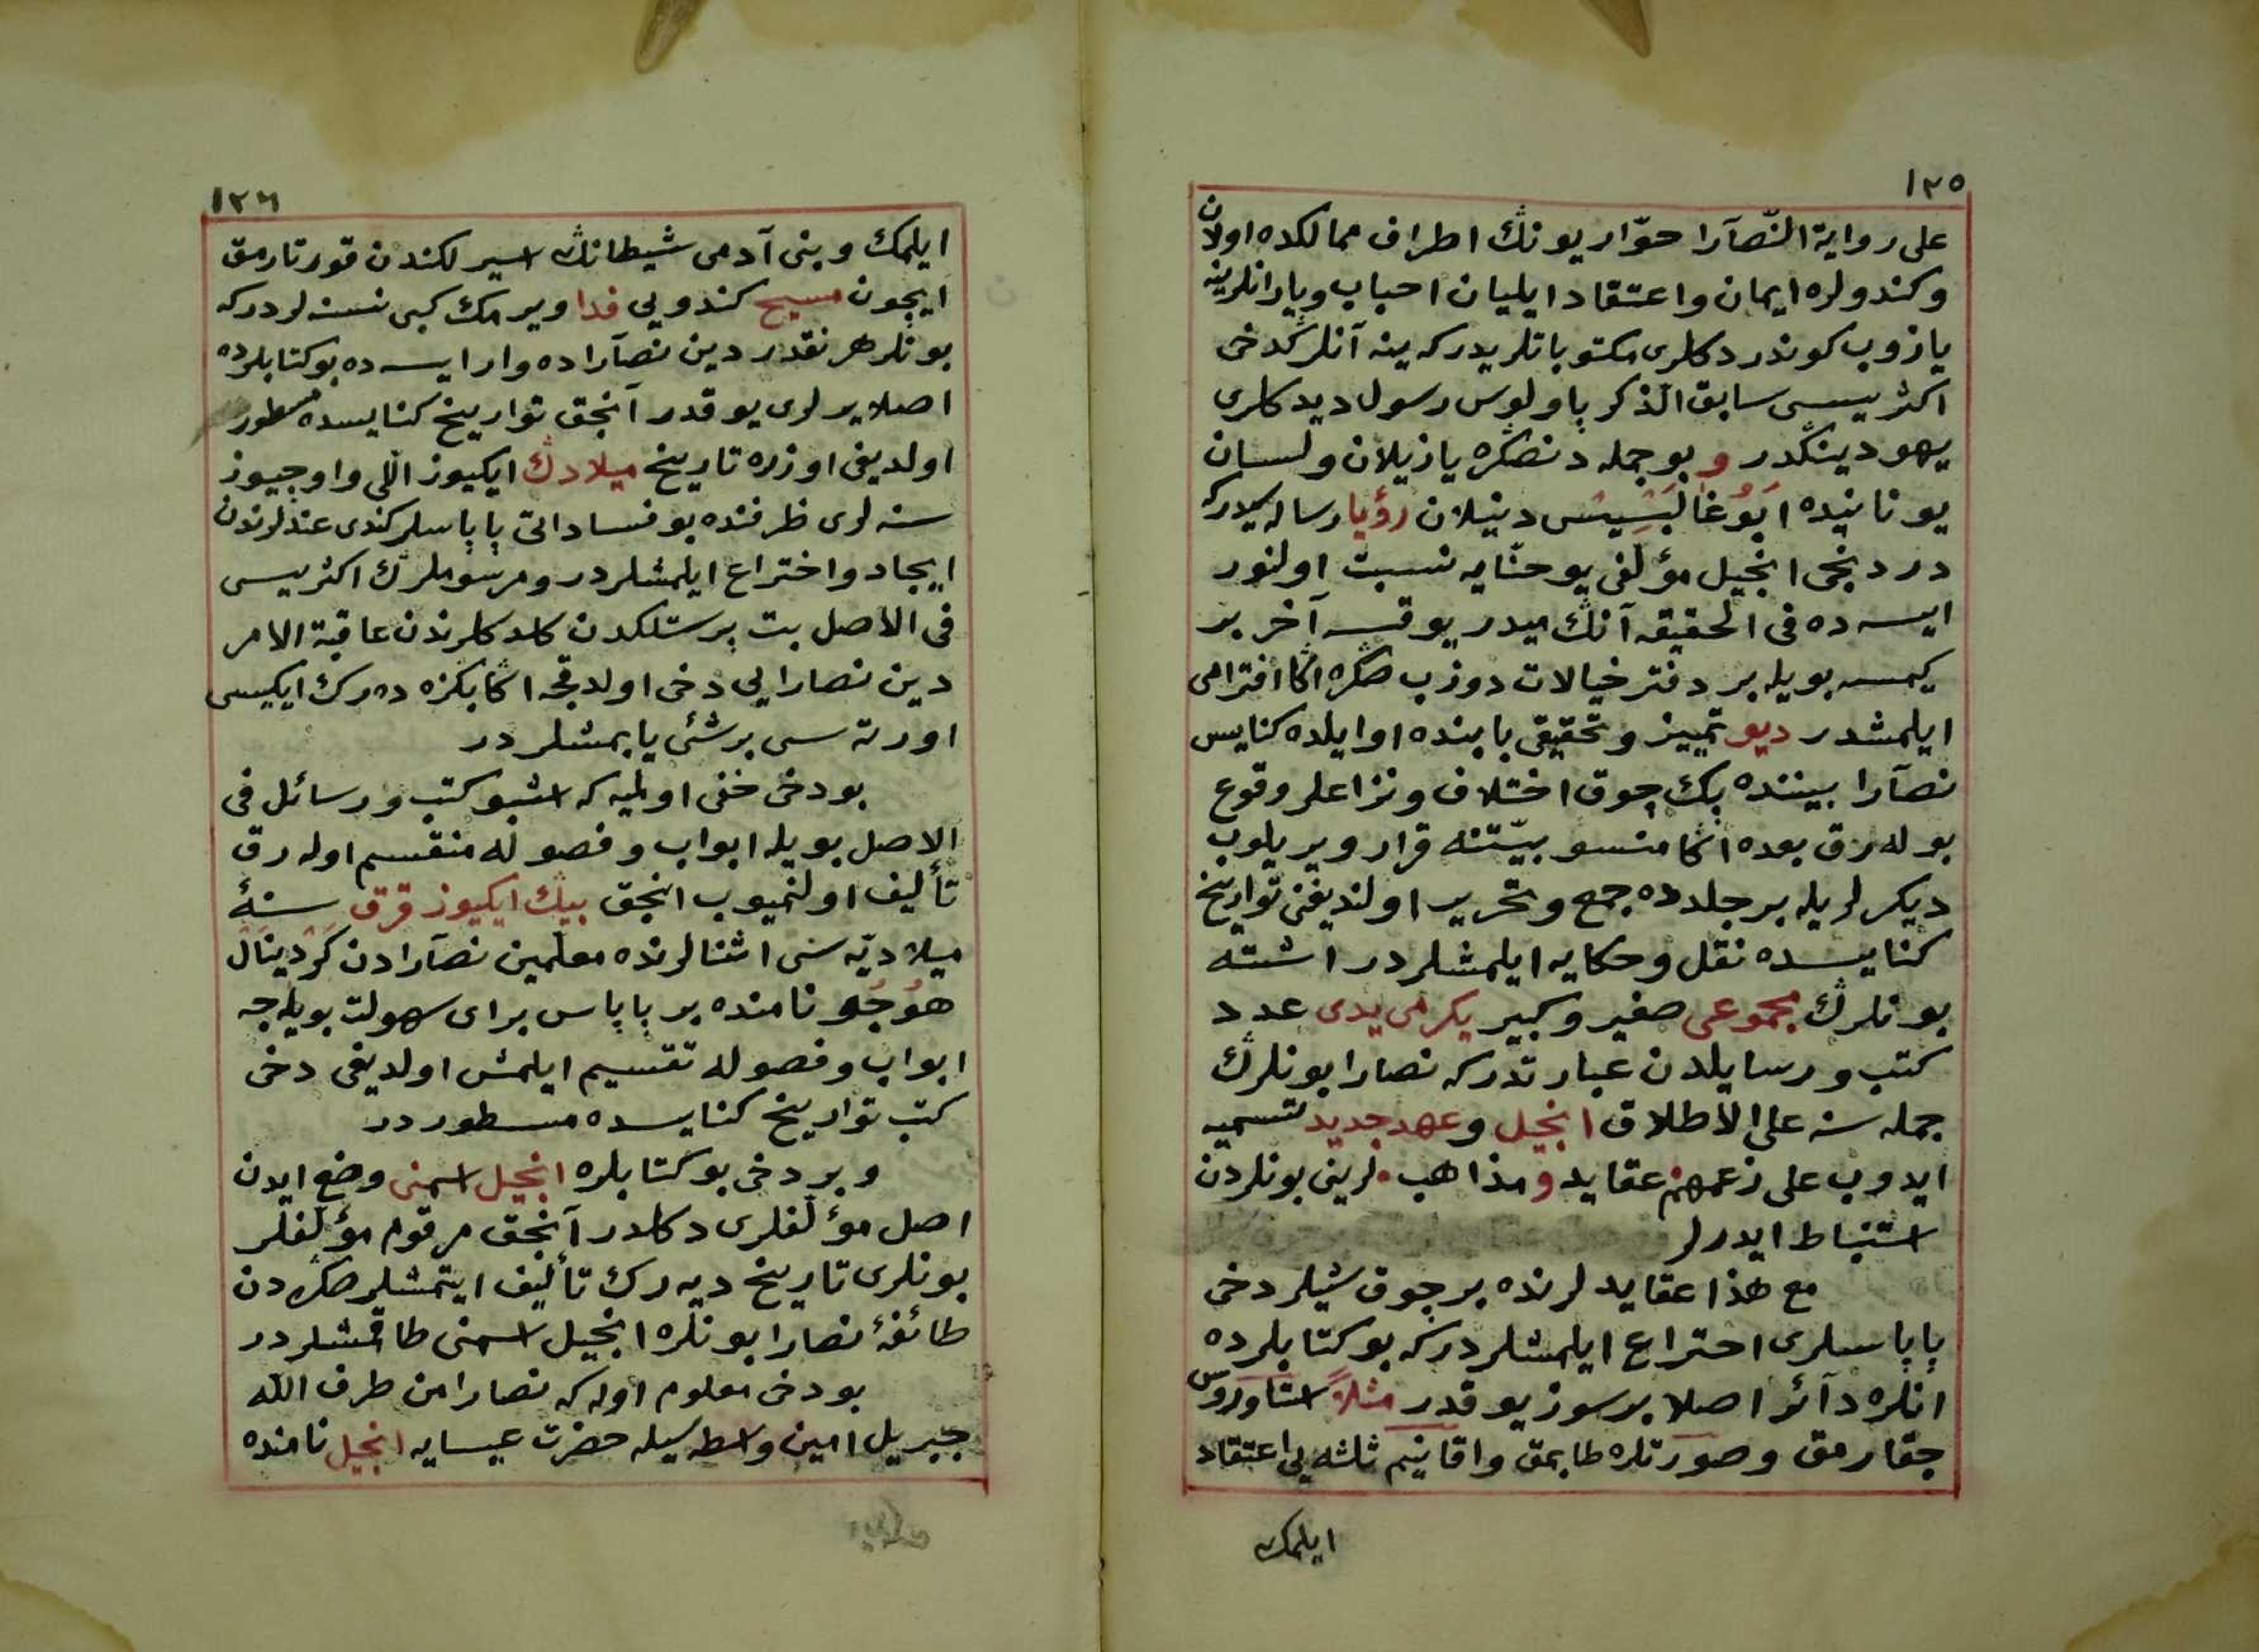 ١٢٥
على رواية النّصآرا حوّاريونڭ اطراف ممالكده اولان
وكندولره ايمان واعتقاد ايليان احباب ويارانلرينه
يازوب كوندردكلرى مكتوباتلريدركه ينه آنلرڭدخى
اكثريسى سابق الذكر پاولوس رسول ديدكلرى
يهودينڭدر و بوجمله دنصڭره يازيلان ولسان
يونانيده اَپُوغالپسِيسْ دنيلان رؤيا رساله سيدركه
دردنجى انجيل مؤلفى يوحنّايه نسبت اولنور
ايسه ده فى الحقيقه آنڭ ميدر يوقسه آخر بر
كيمسه بويله بر دفتر خيالات دوزب صڭره اڭا افترامى
ايلمشدر ديو تمييز وتحقيقى بابنده اوايلده كنايس
نصآرا بيننده پك چوق اختلاف ونزاعلر وقوع
بوله رق بعده اڭا منسوبيّتنه قرار ويريلوب
ديكرلريله بر جلدده جمع وتحرير اولنديغنى تواريخ
كنايسده نقل وحكايه ايلمشلردر اشته
بونلرڭ مجموعى صغير وكبير يكرمى يدى عدد
كتب ورسايلدن عبارتدركه نصارا بونلرڭ
جمله سنه على الاطلاق انجيل وعهد جديد تسميه
ايدوب على زعمهم عقايد و مذاهب لرينى بونلردن
استنباط ايدرلر
مع هذا عقايدلرنده بر چوق شيلر دخى
پاپاسلرى اختراع ايلمشلردركه بوكتابلرده
انلره دآئر اصلا بر سوز يوقدر مثلاً استاوروس
چقارمق وصورتلره طاپمق واقانيم ثلثه يى اعتقاد
ايلمك
١٢٦
ايلمك وبنى آدمى شيطانڭ اسيرلكندن قورتارمق
ايچون مسيح كندويى فدا ويرمك كبى نسنه لردركه
بونلر هر نقدر دين نصآراده وار ايسه ده بوكتابلرده
اصلا يرلرى يوقدر آنجق تواريخ كنايسده مسطور
اولديغى اوزره تاريخ ميلادڭ ايكيوز اللى واوچيوز
سنه لرى ظرفنده بو فساداتى پاپاسلر كندى عندلرندن
ايجاد واختراع ايلمشلردر ومرسوملرڭ اكثريسى
فى الاصل بت پرستلكدن كلدكلرندن عاقبة الامر
دين نصارايى دخى اولدقجه اڭا بكزه ده رك ايكيسى
اورته سى بر شئ ياپمشلردر
بودخى خفى اولميه كه اشبو كتب ورسائل فى
الاصل بويله ابواب وفصوله منقسم اوله رق
تأليف اولنميوب انجق بيڭ ايكيوز قرق سنهٔ
ميلاديّه سى اثنالرنده معلمين نصآرادن كَرْدينَالْ
هوُجُو نامنده بر پاپاس براى سهولت بويله جه
ابواب وفصوله تقسيم ايلمش اولديغى دخى
كتب تواريخ كنايسده مسطوردر
وبر دخى بوكتابلره انجيل اسمنى وضع ايدن
اصل مؤلفلرى دكلدر آنجق مرقوم مؤلفلر
بونلرى تاريخ ديه رك تأليف ايتمشلر صڭره دن
طائفهٔ نصارا بونلره انجيل اسمنى طاقمشلردر
بودخى معلوم اوله كه نصارا من طرف اللّه
جبريل امين واسطه سيله حضرت عيسايه انجيل نامنده